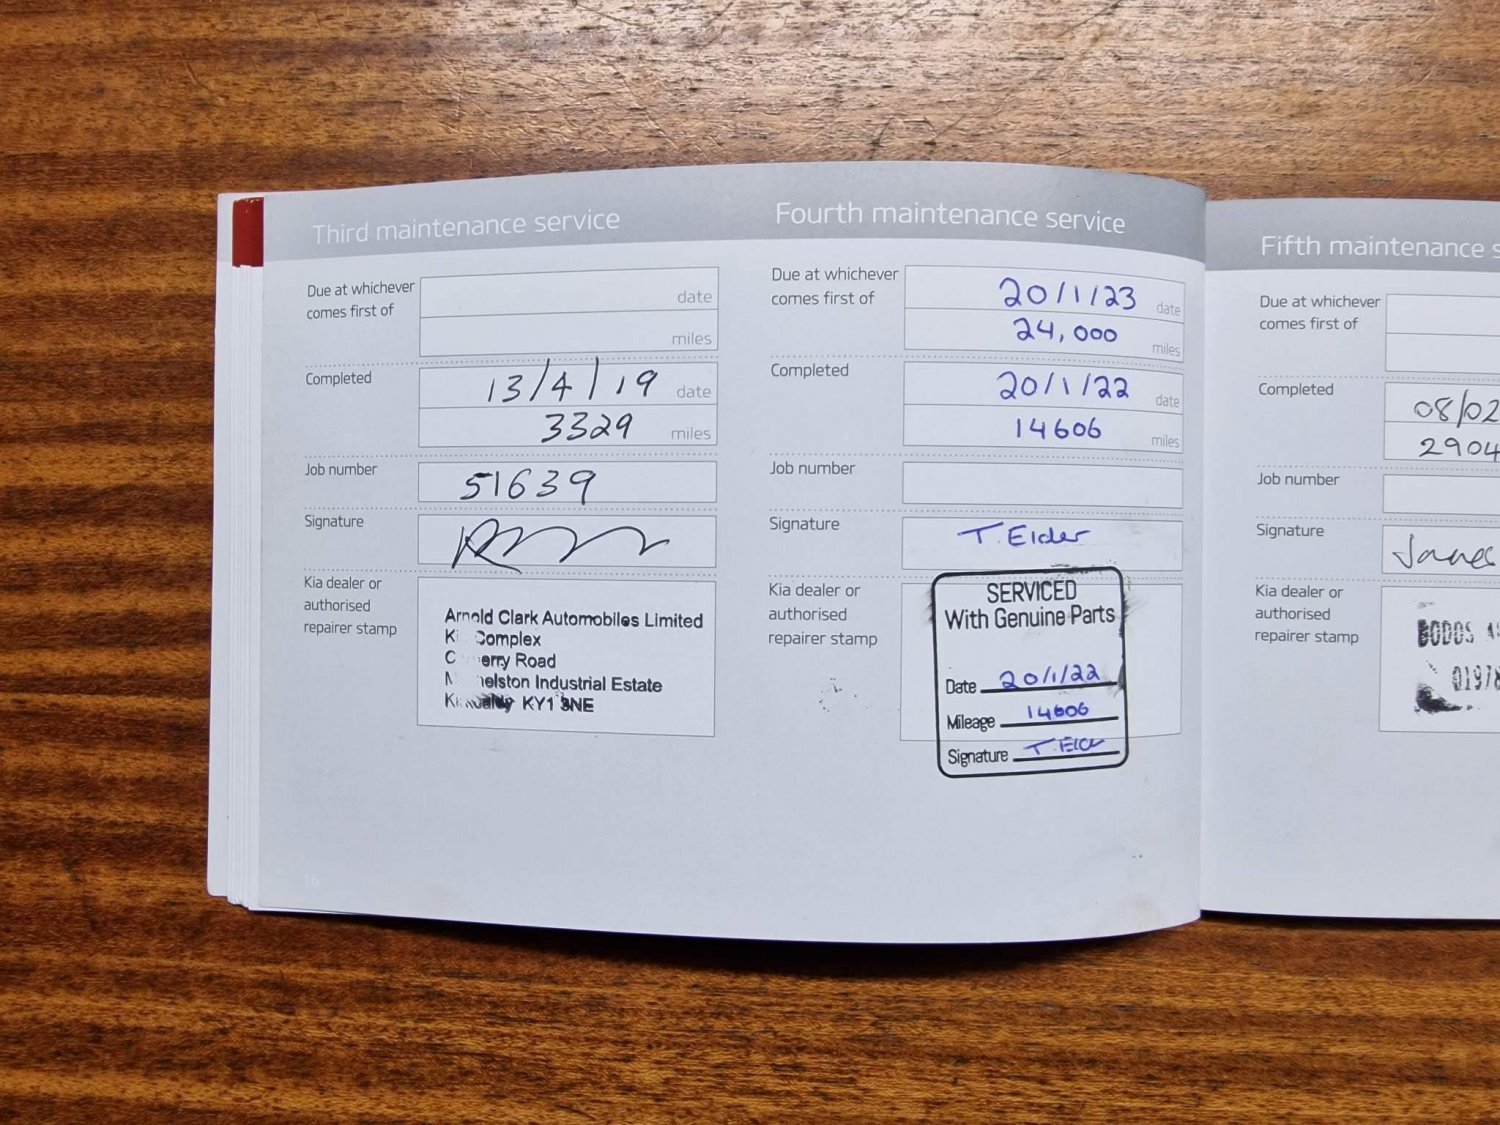 Third maintenance service
Due at whichever
comes first of
date
miles
Completed
13/4/19 date
3329 miles
Job number
51639
Signature
Kia dealer or
authorised
repairer stamp
Arnold Clark Automobiles Limited
Complex
Road
Industrial Estate
KY1 3NE
16
Fourth maintenance service
Due at whichever
comes first of
20/1/23 date
24,000 miles
Completed
20/1/22 date
14606 miles
Job number
Signature
T. Elder
Kia dealer or
authorised
repairer stamp
SERVICED
With Genuine Parts
Date 20/1/22
Mileage 14606
Signature T. Elder
Fifth maintenance s
Due at whichever
comes first of
Completed
08/02
2904
Job number
Signature
James
Kia dealer or
authorised
repairer stamp
01978